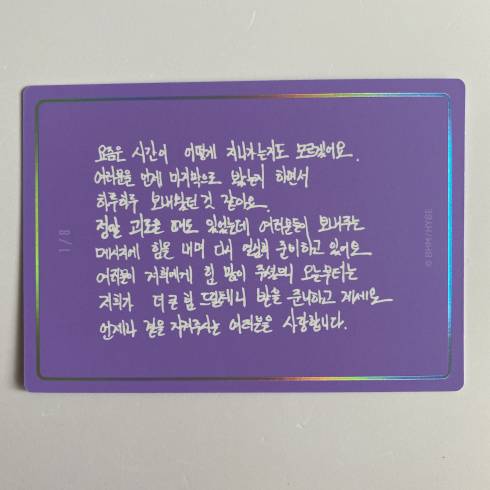 요즘은 시간이 어떻게 지나가는지도 모르겠어요.
여러분을 언제 마지막으로 봤는지 하면서
하루하루 보내왔던 것 같아요.
정말 괴로운 때도 있었는데 여러분이 보내주는
메시지에 힘을 내며 다시 열심히 준비하고 있어요
여러분이 저희에게 힘 많이 주셨으니 오늘부터는
저희가 더 큰 힘 드릴테니 받을 준비하고 계세요
언제나 곁을 지켜주시는 여러분을 사랑합니다.
1/8
© BHM/HYBE